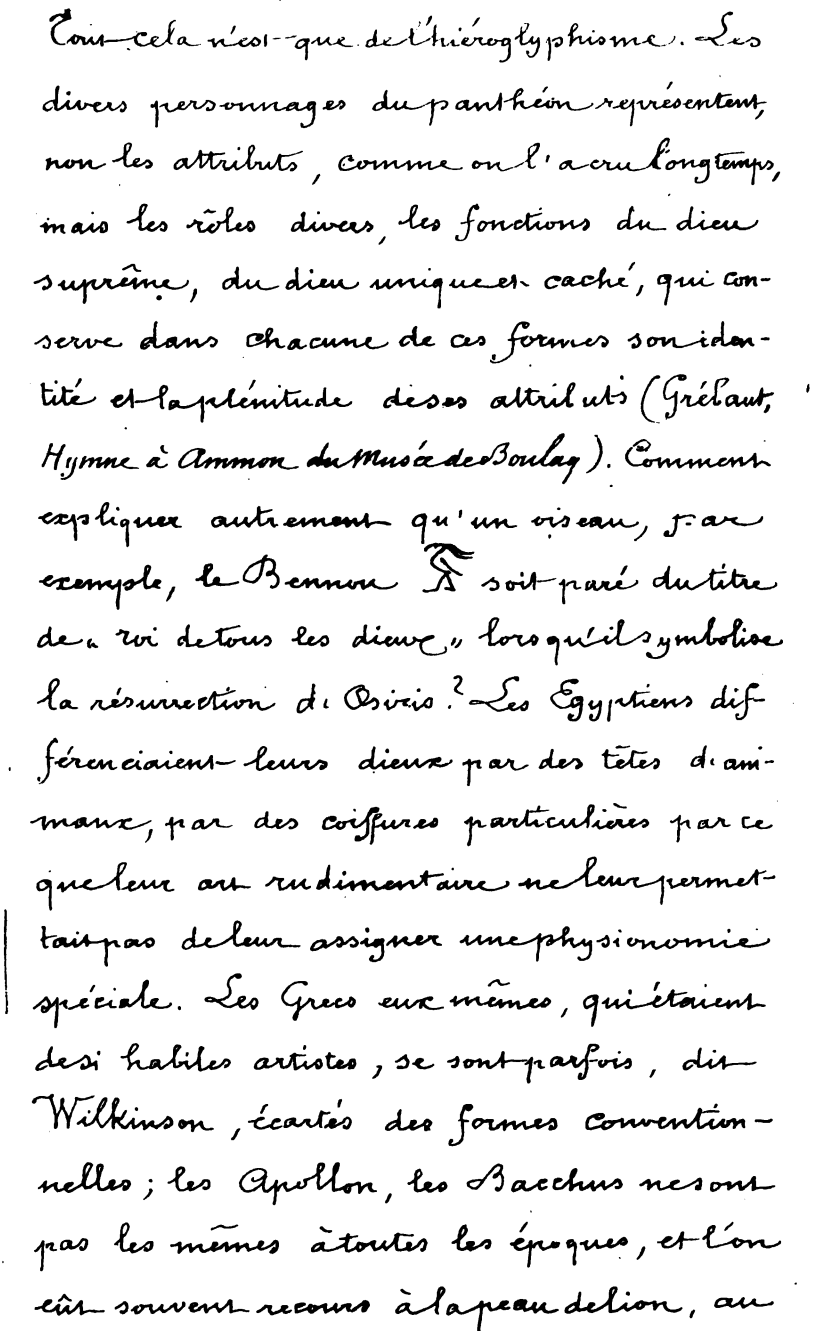 Tout cela n'est que de l'hiéroglyphisme. Les
divers personnages du panthéon représentent,
non les attributs, comme on l'a cru longtemps,
mais les rôles divers, les fonctions du dieu
suprême, du dieu unique et caché, qui con-
serve dans chacune de ces formes son iden-
tité et la plénitude de ses attributs (Grébaut,
Hymne à Ammon du Musée de Boulaq). Comment
expliquer autrement qu'un oiseau, par
exemple, le Bennou soit paré du titre
de " roi de tous les dieux " lorsqu'il symbolise
la résurrection d'Osiris? Les Egyptiens dif-
férenciaient leurs dieux par des têtes d'ani-
maux, par des coiffures particulières par ce
que leur art rudimentaire ne leur permet-
tait pas de leur assigner une physionomie
spéciale. Les Grecs eux mêmes, qui étaient
de si habiles artistes, se sont parfois, dit
Wilkinson, écartés des formes convention-
nelles; les Apollon, les Bacchus ne sont
pas les mêmes à toutes les époques, et l'on
eût souvent recours à la peau de lion, au